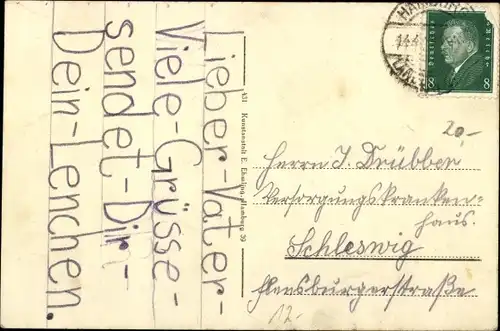 Lieber-Vater-
Viele-Grüsse-
sendet-Dir-
Dein-Lenchen.
451 Kunstanstalt E. Ebeling, Hamburg 30
HAMBURG
14.4
Deutsches Reich
8 8
20,-
Herrn J. Drübben
Versorgungskranken-
haus.
Schleswig
Flensburgerstraße
12,-